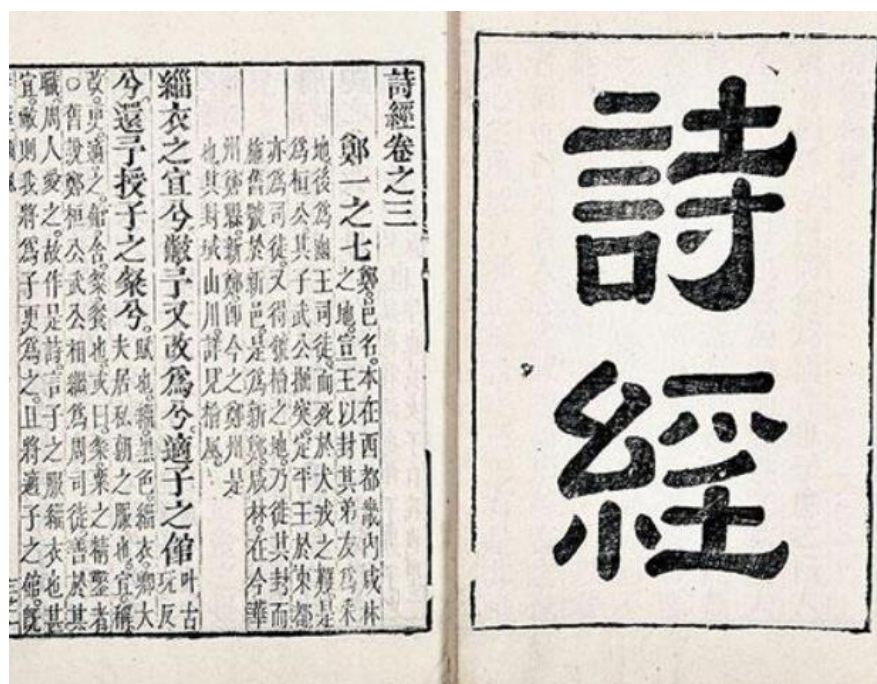 詩經
詩經卷之三
鄭一之七 鄭。邑名。本在西都畿內咸林
之地。宣王以封其弟友爲采
地後爲幽王司徒。而死於犬戎之難。是
爲桓公。其子武公掘突。定平王於東都
亦爲司徒。又得虢檜之地。乃徙其封而
施舊號於新邑。是爲新鄭。咸林。在今華
州鄭縣。新鄭卽今之鄭州是
也。其封域山川。詳見檜風。
緇衣之宜兮。敝予又改爲兮。適子之館 叶古
玩反
兮。還予授子之粲兮。賦也。緇。黑色。緇衣。卿大
夫居私朝之服也。宜。稱
改。更。適。之。館。舍。粲。餐也。或曰。粲。粟之精鑿者
○舊說鄭桓公武公相繼爲周司徒。善於其
職。周人愛之。故作是詩。言子之服緇衣也。甚
宜。敝則我將爲子更爲之。且將適子之館。旣